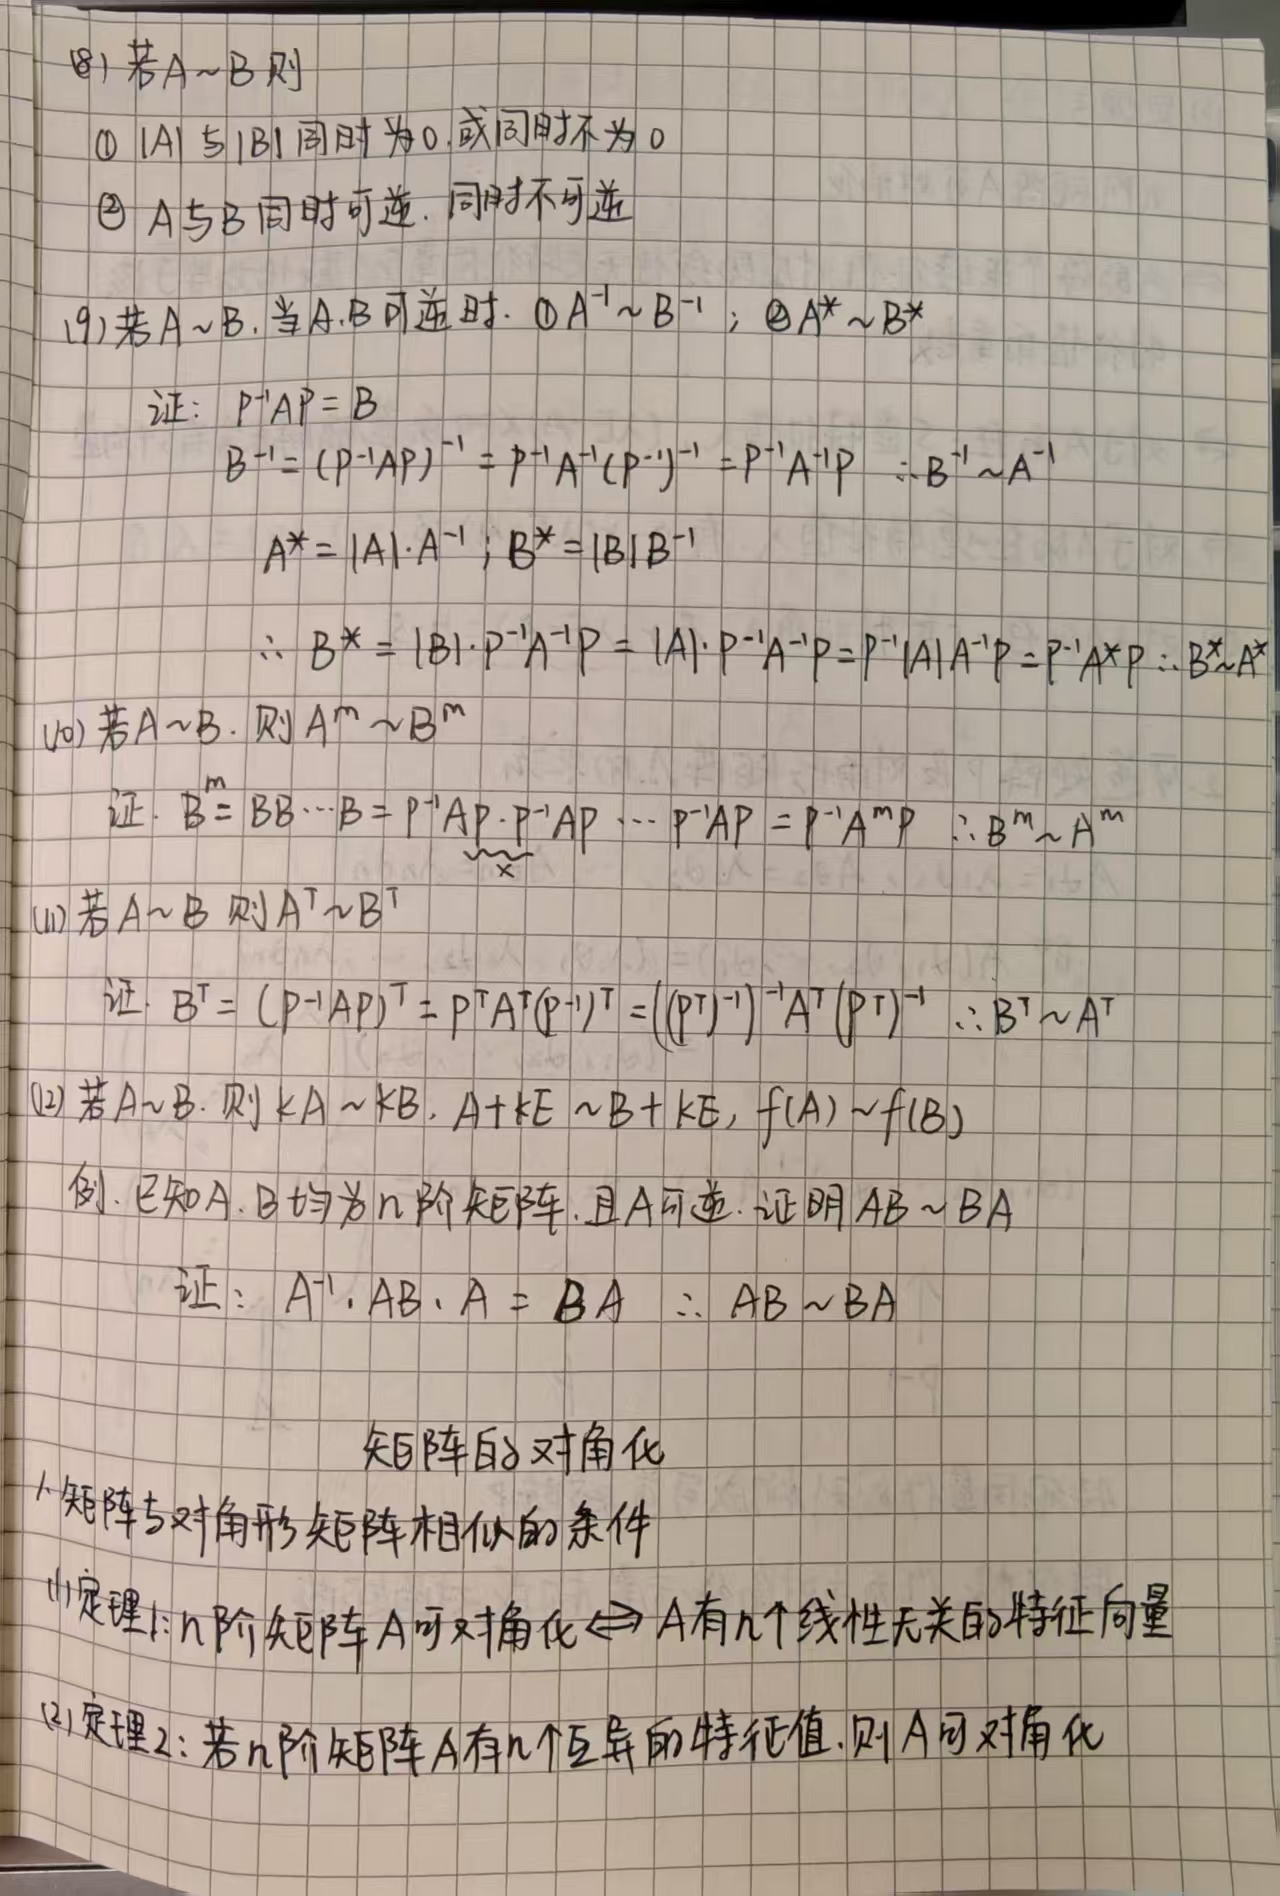 (8) 若A~B则
① |A|与|B|同时为0.或同时不为0
② A与B同时可逆.同时不可逆
(9) 若A~B.当A.B可逆时.①A⁻¹~B⁻¹;②A*~B*
证: P⁻¹AP=B
B⁻¹=(P⁻¹AP)⁻¹=P⁻¹A⁻¹(P⁻¹)⁻¹=P⁻¹A⁻¹P ∴B⁻¹~A⁻¹
A*=|A|·A⁻¹;B*=|B|B⁻¹
∴ B*=|B|·P⁻¹A⁻¹P=|A|·P⁻¹A⁻¹P=P⁻¹|A|A⁻¹P=P⁻¹A*P∴B*~A*
(10) 若A~B.则Aᵐ~Bᵐ
证. Bᵐ=BB…B=P⁻¹AP·P⁻¹AP…P⁻¹AP=P⁻¹AᵐP ∴Bᵐ~Aᵐ
x
(11) 若A~B则Aᵀ~Bᵀ
证. Bᵀ=(P⁻¹AP)ᵀ=PᵀAᵀ(P⁻¹)ᵀ=((Pᵀ)⁻¹)⁻¹Aᵀ(Pᵀ)⁻¹ ∴Bᵀ~Aᵀ
(12) 若A~B.则kA~kB.A+kE~B+kE,f(A)~f(B)
例.已知A.B均为n阶矩阵.且A可逆.证明AB~BA
证: A⁻¹·AB·A=BA ∴AB~BA
矩阵的对角化
1.矩阵与对角形矩阵相似的条件
(1)定理1:n阶矩阵A可对角化⇔A有n个线性无关的特征向量
(2)定理2:若n阶矩阵A有n个互异的特征值.则A可对角化